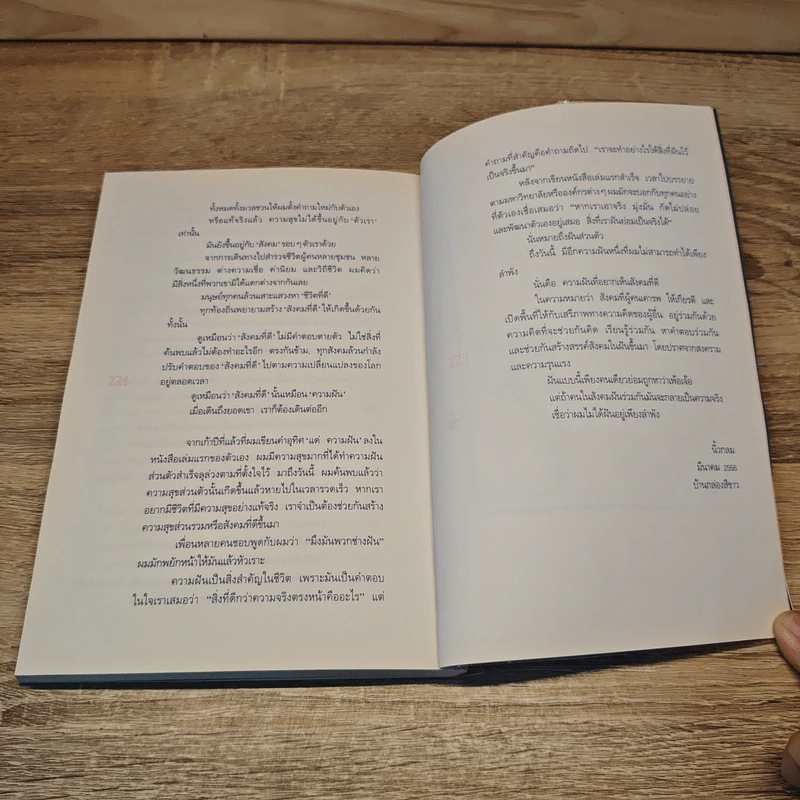 ทั้งหมดทั้งมวลชวนให้ผมตั้งคำถามใหม่กับตัวเอง
หรือแท้จริงแล้ว ความสุขไม่ได้ขึ้นอยู่กับ 'ตัวเรา'
เท่านั้น
มันยังขึ้นอยู่กับ 'สังคม' รอบๆ ตัวเราด้วย
จากการเดินทางไปสำรวจชีวิตผู้คนหลายชุมชน หลาย
วัฒนธรรม ต่างความเชื่อ ค่านิยม และวิถีชีวิต ผมคิดว่า
มีสิ่งหนึ่งที่พวกเขามิได้แตกต่างจากกันเลย
มนุษย์ทุกคนล้วนเสาะแสวงหา 'ชีวิตที่ดี'
ทุกท้องถิ่นพยายามสร้าง 'สังคมที่ดี' ให้เกิดขึ้นด้วยกัน
ทั้งนั้น
ดูเหมือนว่า 'สังคมที่ดี' ไม่มีคำตอบตายตัว ไม่ใช่สิ่งที่
ค้นพบแล้วไม่ต้องทำอะไรอีก ตรงกันข้าม, ทุกสังคมล้วนกำลัง
ปรับคำตอบของ 'สังคมที่ดี' ไปตามความเปลี่ยนแปลงของโลก
อยู่ตลอดเวลา
226
ดูเหมือนว่า 'สังคมที่ดี' นั้นเหมือน 'ความฝัน'
เมื่อเดินถึงยอดเขา เราก็ต้องเดินต่ออีก
จากเก้าปีที่แล้วที่ผมเขียนคำอุทิศ 'แด่ ความฝัน' ลงใน
หนังสือเล่มแรกของตัวเอง ผมมีความสุขมากที่ได้ทำความฝัน
ส่วนตัวสำเร็จลุล่วงตามที่ตั้งใจไว้ มาถึงวันนี้ ผมค้นพบแล้วว่า
ความสุขส่วนตัวนั้นเกิดขึ้นแล้วหายไปในเวลารวดเร็ว หากเรา
อยากมีชีวิตที่มีความสุขอย่างแท้จริง เราจำเป็นต้องช่วยกันสร้าง
ความสุขส่วนรวมหรือสังคมที่ดีขึ้นมา
เพื่อนหลายคนชอบพูดกับผมว่า "มึงมันพวกช่างฝัน"
ผมมักพยักหน้าให้มันแล้วหัวเราะ
ความฝันเป็นสิ่งสำคัญในชีวิต เพราะมันเป็นคำตอบ
ในใจเราเสมอว่า "สิ่งที่ดีกว่าความจริงตรงหน้าคืออะไร" แต่
คำถามที่สำคัญคือคำถามถัดไป "เราจะทำอย่างไรให้สิ่งที่ฝันไว้
เป็นจริงขึ้นมา"
หลังจากเขียนหนังสือเล่มแรกสำเร็จ เวลาไปบรรยาย
ตามมหาวิทยาลัยหรือองค์กรต่างๆ ผมมักจะบอกกับทุกคนอย่าง
ที่ตัวเองเชื่อเสมอว่า "หากเราเอาจริง มุ่งมั่น กัดไม่ปล่อย
และพัฒนาตัวเองอยู่เสมอ สิ่งที่เราฝันย่อมเป็นจริงได้"
นั่นหมายถึงฝันส่วนตัว
ถึงวันนี้ มีอีกความฝันหนึ่งที่ผมไม่สามารถทำได้เพียง
ลำพัง
นั่นคือ ความฝันที่อยากเห็นสังคมที่ดี
ในความหมายว่า สังคมที่ผู้คนเคารพ ให้เกียรติ และ
เปิดพื้นที่ให้กับเสรีภาพทางความคิดของผู้อื่น อยู่ร่วมกันด้วย
ความคิดที่จะช่วยกันคิด เรียนรู้ร่วมกัน หาคำตอบร่วมกัน
และช่วยกันสร้างสรรค์สังคมในฝันขึ้นมา โดยปราศจากสงคราม
และความรุนแรง
ฝันแบบนี้เพียงคนเดียวย่อมถูกหาว่าเพ้อเจ้อ
แต่ถ้าคนในสังคมฝันร่วมกันมันจะกลายเป็นความจริง
เชื่อว่าผมไม่ได้ฝันอยู่เพียงลำพัง
นิ้วกลม
มีนาคม 2556
บ้านกล่องสีขาว